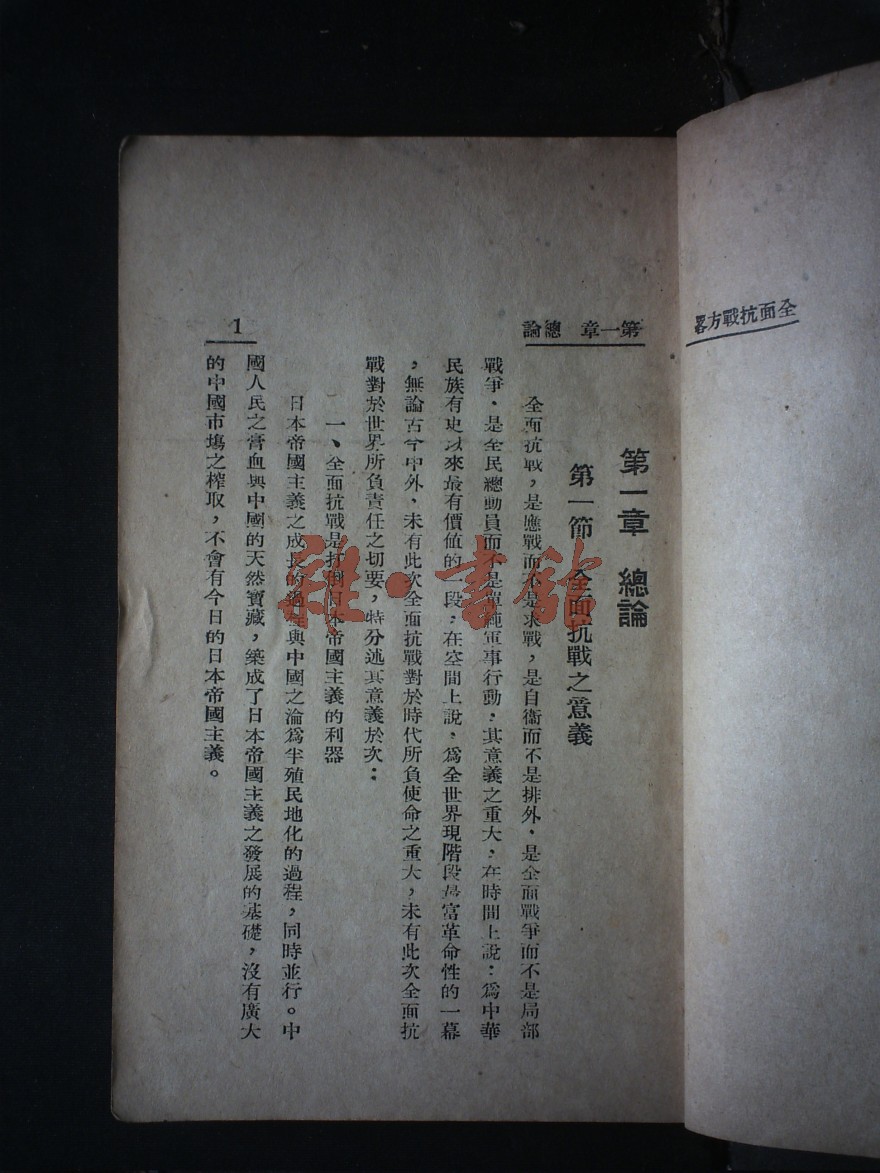 全面抗戰方畧
第一章 總論
1
第一章 總論
第一節 全面抗戰之意義
全面抗戰，是應戰而不是求戰，是自衞而不是排外，是全面戰爭而不是局部
戰爭，是全民總動員而不是單純軍事行動，其意義之重大，在時間上說：爲中華
民族有史以來最有價値的一段，在空間上說，爲全世界現階段最富革命性的一幕
，無論古今中外，未有此次全面抗戰對於時代所負使命之重大，未有此次全面抗
戰對於世界所負責任之切要，特分述其意義於次：
一、全面抗戰是打倒日本帝國主義的利器
日本帝國主義之成長的過程與中國之淪爲半殖民地化的過程，同時並行。中
國人民之膏血與中國的天然寶藏，築成了日本帝國主義之發展的基礎，沒有廣大
的中國市塲之榨取，不會有今日的日本帝國主義。
雜·書館